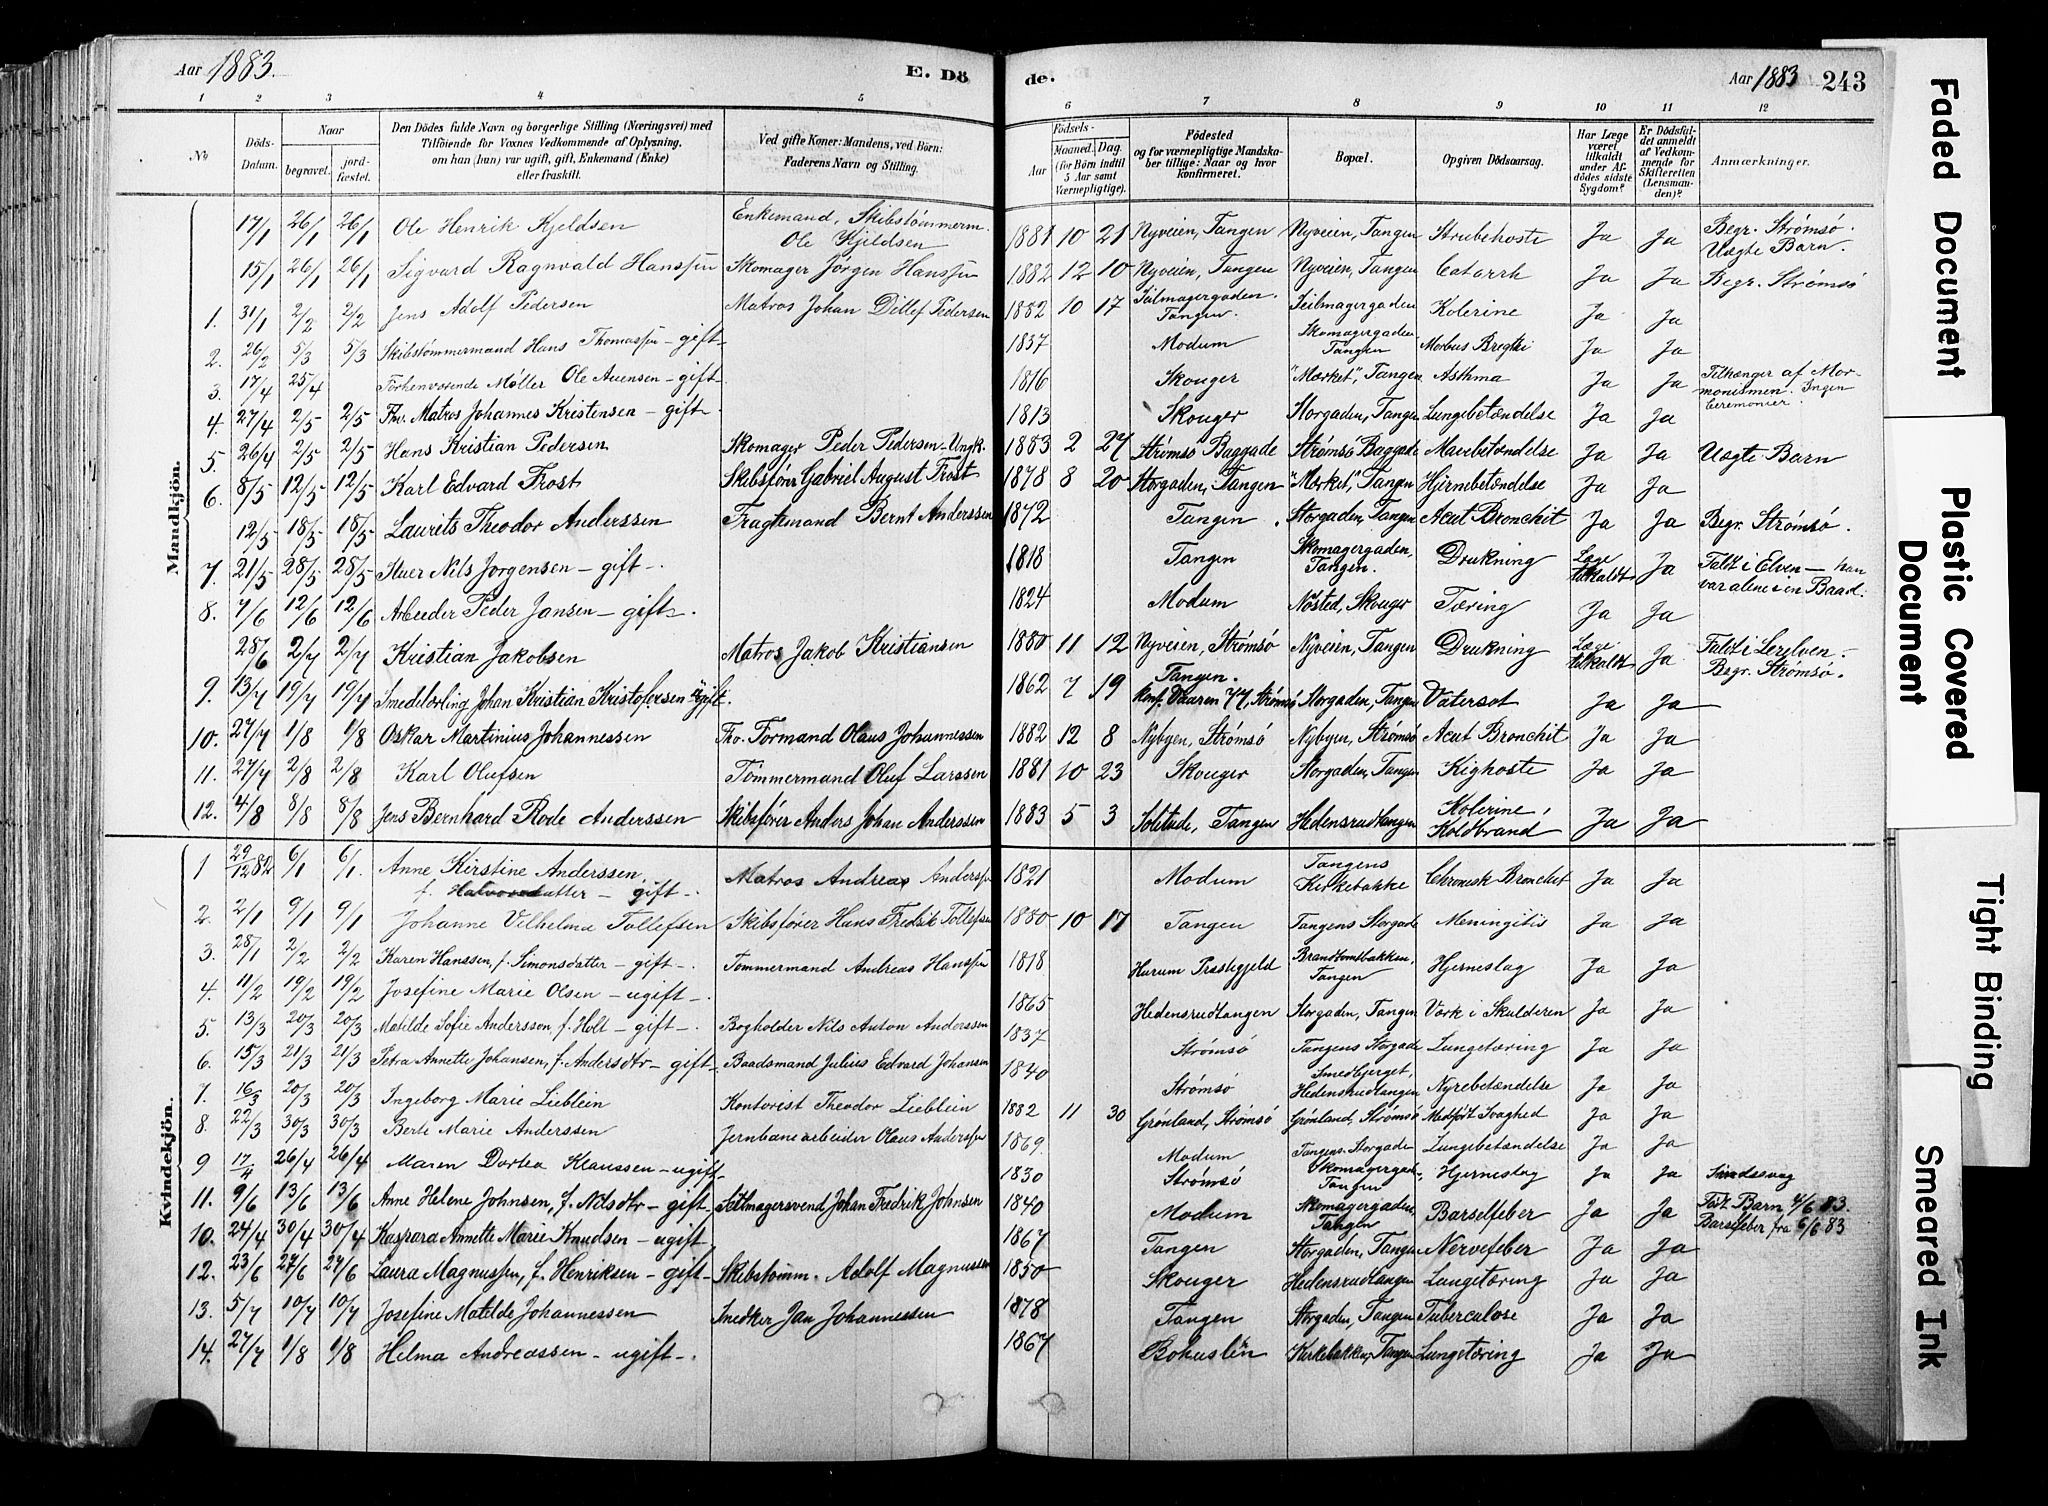 Aar 1883.
E. Dö
de.
Aar 1883 243
1 2 3 4 5 6 7 8 9 10 11 12
No
Döds-Datum.
Naar
begravet.
jord-fæstet.
Den Dödes fulde Navn og borgerlige Stilling (Næringsvei) med
Tilföiende for Voxnes Vedkommende af Oplysning,
om han (hun) var ugift, gift, Enkemand (Enke)
eller fraskilt.
Ved gifte Koner: Mandens, ved Börn:
Faderens Navn og Stilling.
Födsels-
Aar
Maaned. Dag.
(for Börn indtil
5 Aar samt
Værnepligtige).
Födested
og for værnepligtige Mandska-
ber tillige: Naar og hvor
Konfirmeret.
Bopæl.
Opgiven Dödsaarsag.
Har Læge
været
tilkaldt
under Af-
dödes sidste
Sygdom?
Er Dödsfal-
det anmeldt
af Vedkom-
mende for
Skifteretten
(Lensman-
den)?
Anmærkninger.
Mandkjön.
17/1 26/1 26/1 Ole Henrik Kjeldsen Enkemand, Skibstömmerm. Ole Kjeldsen 1881 10 21 Nyveien, Tangen Nyveien, Tangen Strubehoste Ja Ja Begr. Strømsø. Uægte Barn.
15/1 26/1 26/1 Sigvard Ragnvald Hanssen Skomager Jörgen Hanssen 1882 12 10 Nyveien, Tangen Nyveien, Tangen Catarrh Ja Ja Begr. Strømsø
1. 31/1 2/2 2/2 Jens Adolf Pedersen Matros Johan Ditlef Pedersen 1882 10 17 Seilmagergaden. Tangen. Seilmagergaden Kolerine Ja Ja
2. 26/2 5/3 5/3 Skibstömmermand Hans Thomassen - gift - 1837 Modum Skomagergaden Tangen Morbus Brigthi Ja Ja
3. 17/4 25/4 Forhenværende Møller Ole Auensen - gift - 1816 Skouger "Mærket", Tangen Asthma Ja Ja Tilhænger af Mor-
monismen. Ingen
Ceremonier.
4. 27/4 2/5 2/5 Fhv. Matros Johannes Kristensen - gift - 1813 Skouger Storgaden, Tangen Lungebetændelse Ja Ja
5. 26/4 2/5 2/5 Hans Kristian Pedersen Skomager Peder Pedersen - Ungk. 1883 2 27 Strømsö Baggade Strømsö Baggade Mavebetændelse Ja Ja Uægte Barn
6. 8/5 12/5 12/5 Karl Edvard Frost Skibsfører Gabriel August Frost 1878 8 20 Storgaden, Tangen "Mærket", Tangen Hjernebetændelse Ja Ja
12/5 18/5 18/5 Laurits Theodor Anderssen Fragtemand Bernt Anderssen 1872 Tangen. Storgaden, Tangen Acut Bronchit Ja Ja Begr. Strømsö.
7. 21/5 28/5 28/5 Stuer Nils Jorgensen - gift -. 1818 Tangen Skomagergaden, Tangen. Drukning Læge tilkaldt Ja Faldt i Elven - han
var alene i en Baad.
8. 7/6 12/6 12/6 Arbeider Peder Jansen - gift -. 1824 Modum Nøsted, Skouger Tæring Ja Ja
28/6 2/7 2/7 Kristian Jakobsen Matros Jakob Kristiansen 1880 11 12 Nyveien, Strømsö Nyveien, Tangen Drukning Læge tilkaldt Ja Faldt i Lerelven. -
Begr. Strømsö.
9. 13/7 19/7 19/7 Smedelærling Johan Kristian Kristofersen ugift. 1862 7 19 Tangen. Konf. Vaaren 77, Strømsö Storgaden, Tangen Vatersot Ja Ja
10. 27/7 1/8 1/8 Oskar Martinius Johannessen Fhv. Formand Olaus Johannessen 1882 12 8 Nybyen, Strømsö Nybyen, Strømsö Acut Bronchit Ja Ja
11. 27/7 2/8 2/8 Karl Olufsen Tömmermand Oluf Larssen 1881 10 23 Skouger Storgaden, Tangen Kighoste Ja Ja
12. 4/8 8/8 8/8 Jens Bernhard Rode Anderssen Skibsfører Anders Johan Anderssen 1883 5 3 Solitude, Tangen Hedensrudtangen Kolerine, Koldbrand Ja Ja
Kvindekjön.
1 29/12 82 6/1 6/1. Anne Kirstine Anderssen, f. Halvorsdatter - gift -. Matros Andreas Anderssen 1821 Modum Tangens Kirkebakke Chronisk Bronchit Ja Ja
2. 2/1 9/1 9/1 Johanne Vilhelma Tollefsen Skibsfører Hans Fredrik Tollefsen 1880 10 17 Tangen Tangens Storgade Meningitis Ja Ja
3. 28/1 2/2 2/2 Karen Hanssen, f. Simonsdatter - gift -. Tømmermand Andreas Hanssen 1818 Hurum Præstegjeld Brandtomtbakken, Tangen Hjerneslag Ja Ja
4. 11/2 19/2 19/2 Josefine Marie Olsen - ugift -. 1865 Hedensrudtangen Storgaden, Tangen Værk i Skulderen Ja Ja
5. 13/3 20/3 20/3 Matilde Sofie Anderssen, f. Holt - gift -. Bogholder Nils Anton Anderssen 1837 Strømsö Tangens Storgade Lungetæring Ja Ja
6. 15/3 21/3 21/3 Petra Annette Johansen, f. Andersdtr - gift - Baadsmand Julius Edvard Johansen 1840 Strømsö Smedbjerget, Hedensrudtangen Nyrebetændelse Ja Ja
7. 16/3 20/3 20/3 Ingeborg Marie Lieblein Kontorist Theodor Lieblein 1882 11 30 Grønland, Strømsö Grønland, Strømsö Medfødt Svaghed Ja Ja
8. 22/3 30/3 30/3 Berte Marie Anderssen Jernbanearbeider Olaus Anderssen 1869. Modum Tangens Storgade Lungebetændelse Ja Ja
9 17/4 26/4 26/4 Maren Dortea Klaussen - ugift - 1830 Strømsö Skomagergad., Tangen Hjerneslag Ja Ja Sindssvag
11. 9/6 13/6 13/6 Anne Helene Johnsen, f. Nilsdtr - gift - Seilmagersvend Johan Fredrik Johnsen 1840 Modum Skomagergaden, Tangen Barselfeber Ja Ja Født Barn 4/6 83.
Barselfeber fra 6/6 83
10. 24/4 30/4 30/4 Kaspara Annette Marie Knudsen - ugift 1867 Tangen Storgaden, Tangen Nervefeber Ja Ja
12. 23/6 27/6 27/6 Laura Magnussen, f. Henriksen - gift - Skibstømm. Adolf Magnussen 1850 Skouger Hedensrudtangen Lungetæring Ja Ja
13. 5/7 10/7 10/7 Josefine Matilde Johannessen Snedker Jan Johannessen 1878 Tangen Storgaden, Tangen Tuberculose Ja Ja
14. 27/7 1/8 1/8 Helma Andreassen - ugift -. 1867 Bohuslén Kirkebakken, Tangen Lungetæring Ja Ja
Faded Document
Plastic Covered
Document
Tight Binding
Smeared Ink